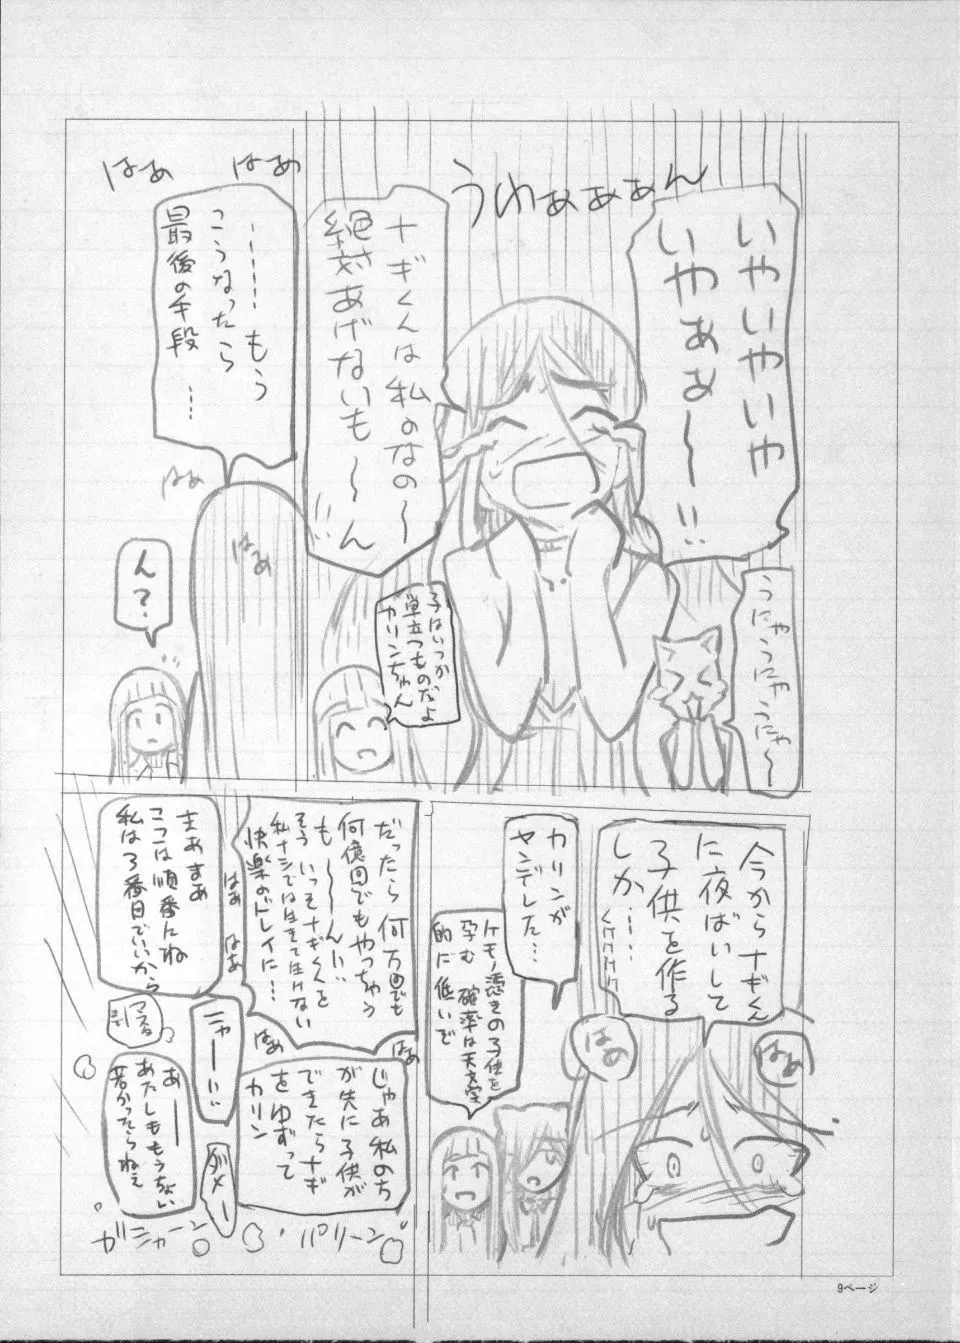 いやいやいや
いやああ〜!!
うわぁぁぁん
うにゃうにゃうにゃ〜
ナギくんは私のなの〜
絶対あげないも〜ん
子はいつか
巣立つものだよ
カリンちゃん
はぁ
はぁ
……もう
こうなったら
最後の手段
…
はぁ
はぁ
ん?
今からナギくん
に夜ばいして
子供を作る
しか……
はぁ
はぁ
カリンが
ヤンデレした…
ケモノ憑きの子供を
孕む確率は天文学
的に低いぞ
だったら何万回でも
何億回でもやっちゃう
も〜ん!!
そういっそナギくんを
私ナシでは生きて行けない
快楽のトレイに…
はぁ
はぁ
はぁ
はぁ
じゃあ私のち
が先に子供が
できたらナギ
をゆずって
カリン
まぁまぁ
ここは順番にね
私は3番目でいいから
ニャー!!
ダメー
あ——
あたしももうちょい
若かったらねぇ
パリーン
ガシャーン
9ページ